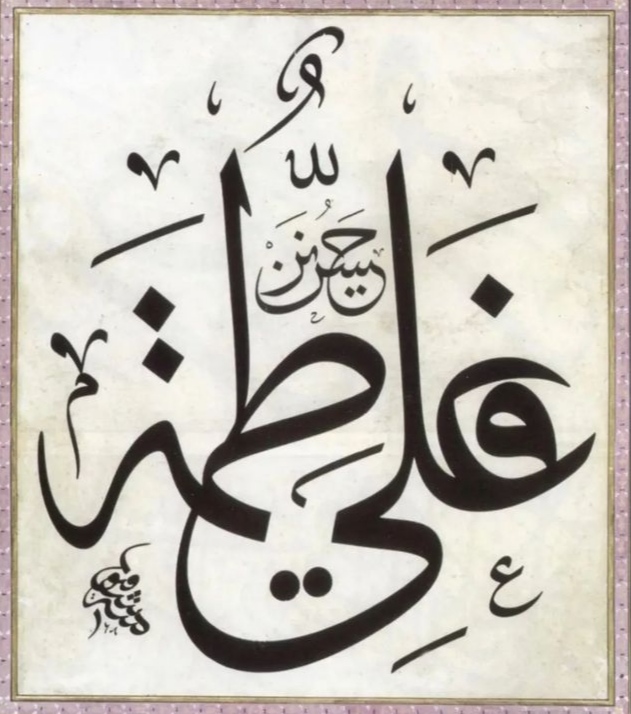 لله
حسن حسين
فاطمة علي